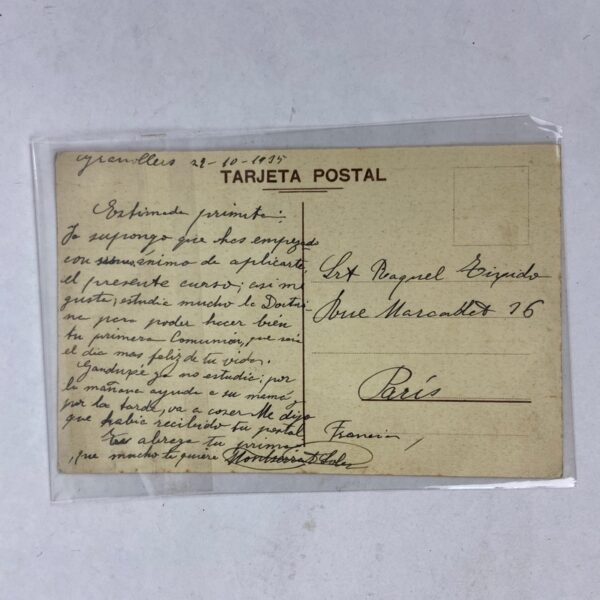 Granollers 22-10-1935
TARJETA POSTAL
Estimada primita:
Ja supongo que has empezado
con ánimo de aplicarte
el presente curso; asi me
gusta; estudia mucho la Doctri
na para poder hacer bien
tu primera Comunion, que será
el dia mas feliz de tu vida.
ya no estudia; por
la mañana ayuda a su mamá y
por la tarde, va a coser Me dijo
que habia recibido tu postal
abraza tu prima
que mucho te quiere Montserrat
Srta Raquel
Rue Marcadet
París
Francia